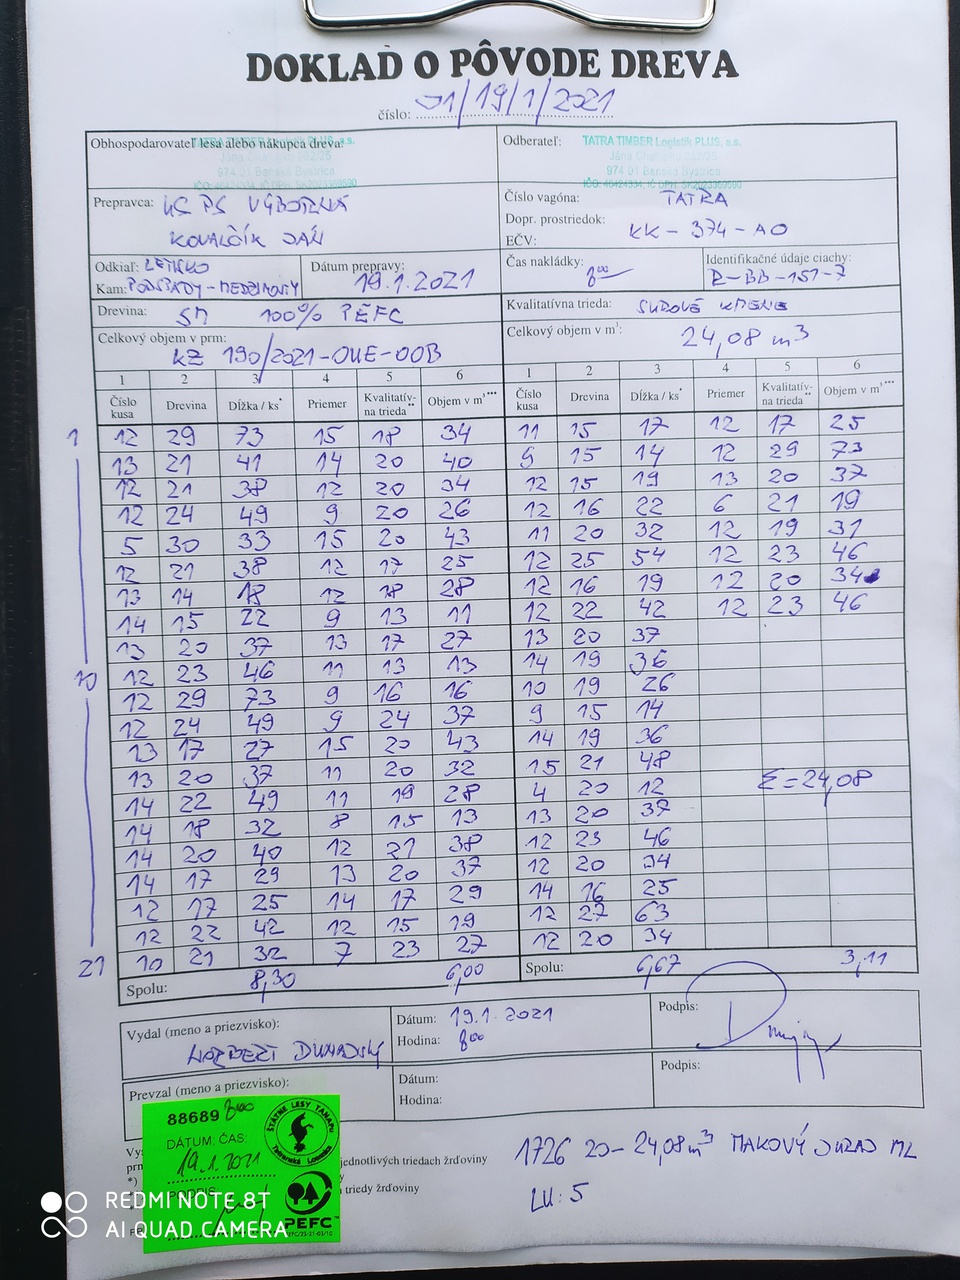 DOKLAD O PÔVODE DREVA
číslo: 01/19/1/2021
Obhospodarovateľ lesa alebo nákupca dreva:
TATRA TIMBER Logistik PLUS, a.s.
974 01 Banská Bystrica
Odberateľ:
TATRA TIMBER Logistik PLUS, a.s.
974 01 Banská Bystrica
Prepravca: KS PS VÝBORNÁ
KOVALČÍK JÁN
Číslo vagóna: TATRA
Dopr. prostriedok:
EČV: KK-374-AO
Odkiaľ: LETISKO
Kam: PODSPÁDY-MEDZIMOSTY
Dátum prepravy:
19.1.2021
Čas nakládky:
8⁰⁰
Identifikačné údaje ciachy:
R-BB-151-7
Drevina: SM 100% PEFC
Kvalitatívna trieda: SUROVÉ KMENE
Celkový objem v prm:
KZ 190/2021-OUE-OOB
Celkový objem v m³: 24,08 m³
1 2 3 4 5 6 1 2 3 4 5 6
Číslo kusa Drevina Dĺžka / ks* Priemer Kvalitatív-na trieda** Objem v m³*** Číslo kusa Drevina Dĺžka / ks* Priemer Kvalitatív-na trieda** Objem v m³***
1 12 29 73 15 18 34 11 15 17 12 17 25
13 21 41 14 20 40 9 15 14 12 29 73
12 21 38 12 20 34 12 15 19 13 20 37
12 24 49 9 20 26 12 16 22 6 21 19
5 30 33 15 20 43 11 20 32 12 19 31
12 21 38 12 17 25 12 25 54 12 23 46
13 14 18 12 18 28 12 16 19 12 20 34
14 15 22 9 13 11 12 22 42 12 23 46
13 20 37 13 17 27 13 20 37
10 12 23 46 11 13 13 14 19 36
12 29 73 9 16 16 10 19 26
12 24 49 9 24 37 9 15 14
13 17 27 15 20 43 14 19 36
13 20 37 11 20 32 15 21 48
14 22 49 11 19 28 4 20 12 Σ=24,08
14 18 32 8 15 13 13 20 37
14 20 40 12 21 38 12 23 46
14 17 29 13 20 37 12 20 34
12 17 25 14 17 29 14 16 25
12 22 42 12 15 19 12 27 63
21 10 21 32 7 23 27 12 20 34
Spolu: 8,30 6,00 Spolu: 6,67 3,11
Vydal (meno a priezvisko):
NORBERT DUNAJSKÝ
Dátum: 19.1.2021
Hodina: 8⁰⁰
Podpis:
Prevzal (meno a priezvisko):
Dátum:
Hodina:
Podpis:
88689 8⁰⁰
DÁTUM: ČAS:
19.1.2021
PODPIS
ŠTÁTNE LESY TANAPU
Tatranská Lomnica
PEFC™
jednotlivých triedach žrďoviny
triedy žrďoviny
1726 20-24,08m³ MAKOVÝ JURAJ ML
LU: 5
REDMI NOTE 8T
AI QUAD CAMERA